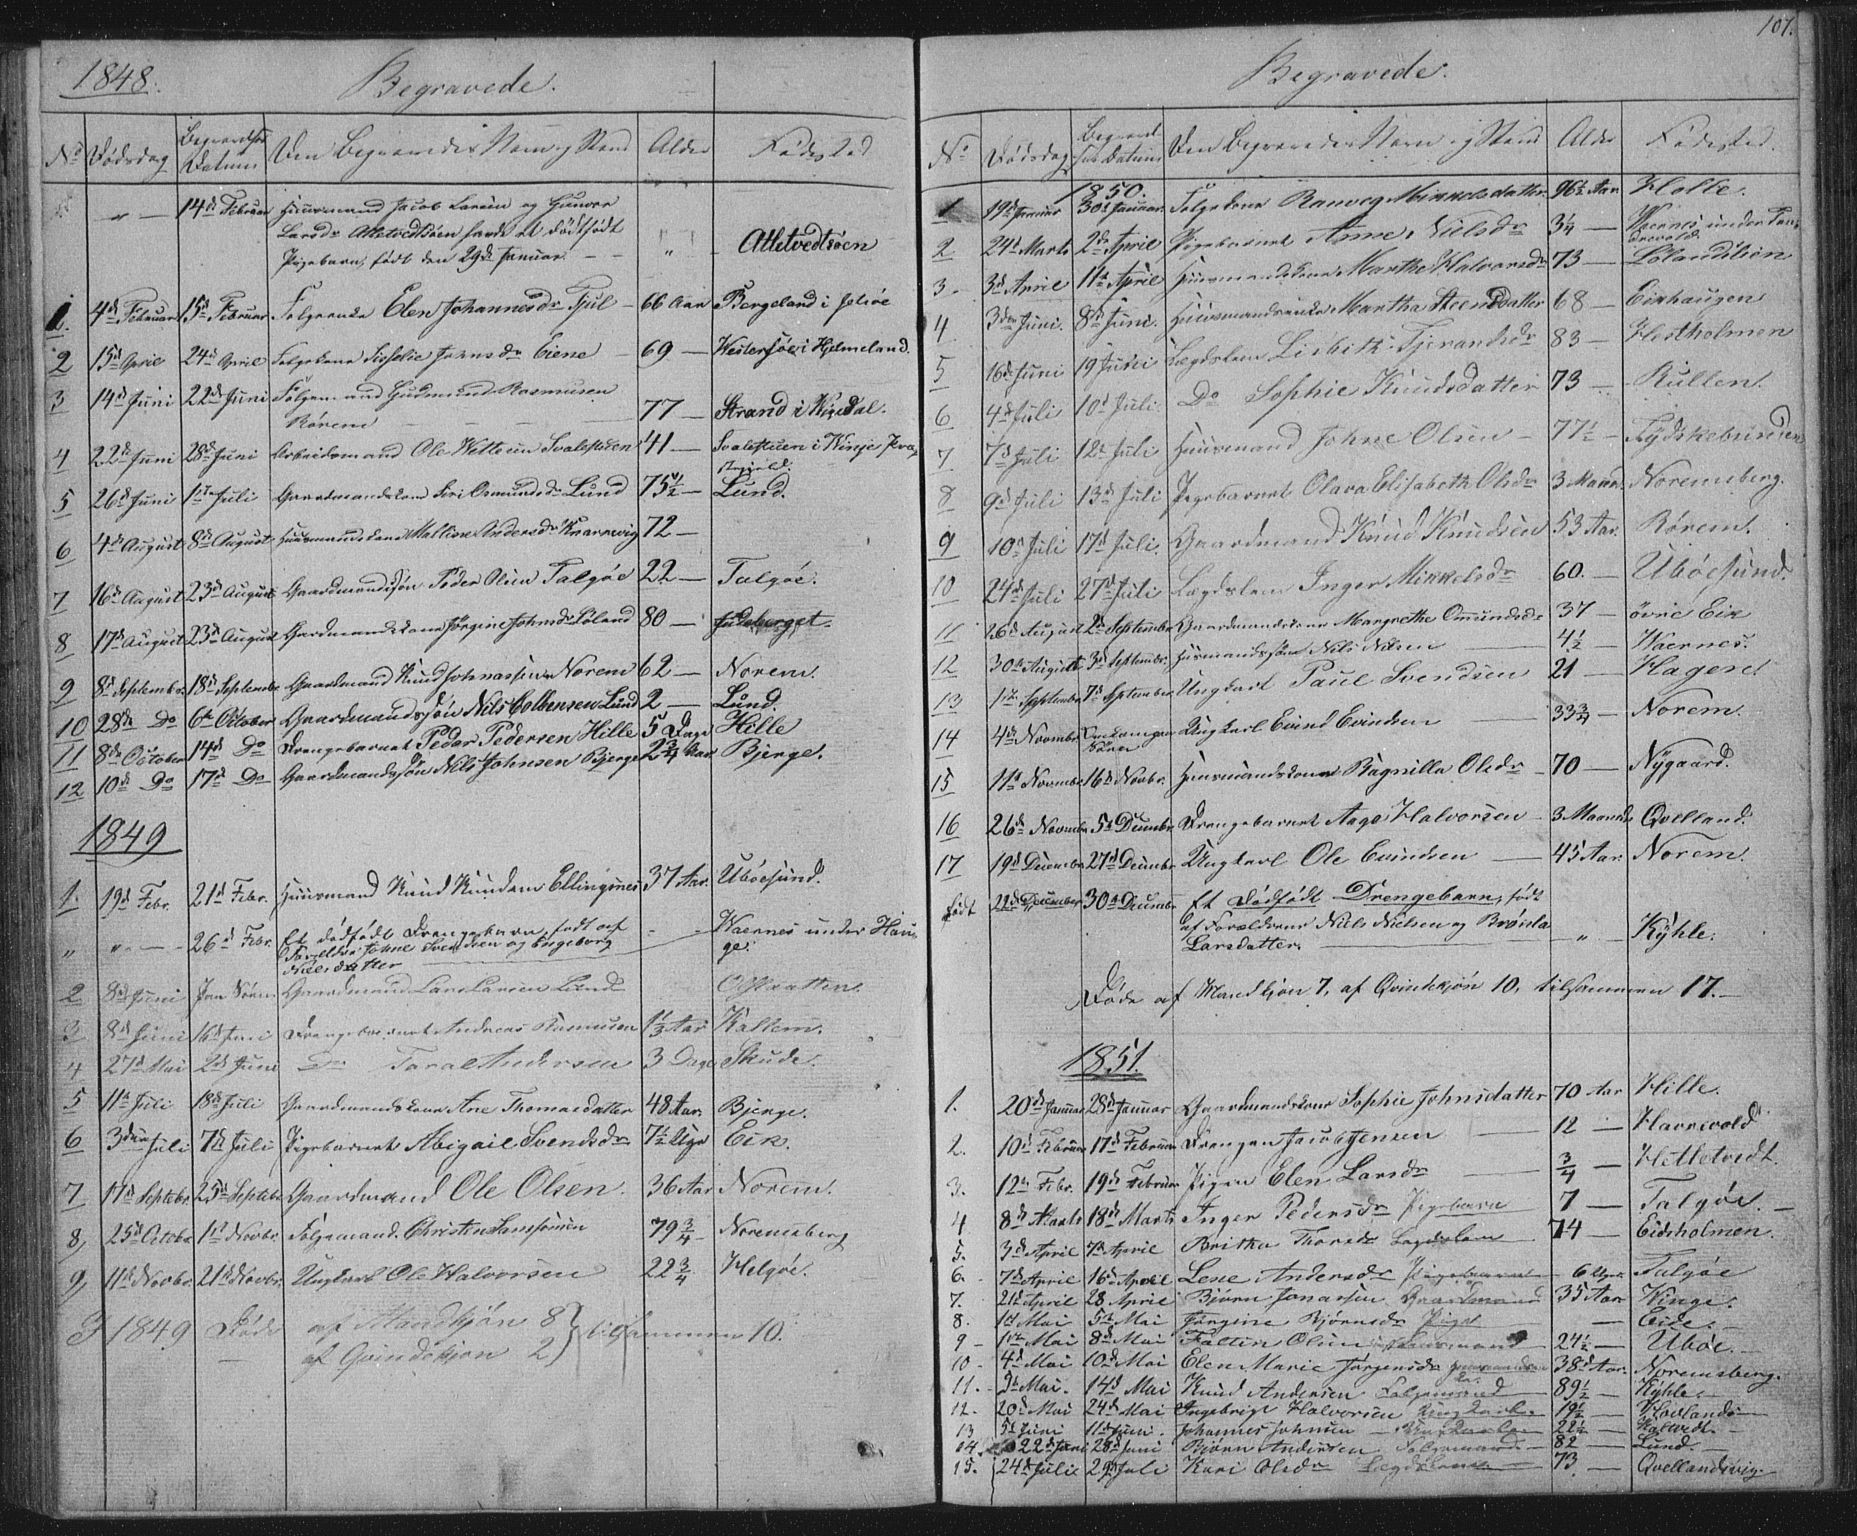 1848. Begravede.
No Dødsdag Begravelses Datum Den Begravedes Navn og Stand Alder Fødested
" — 14de Februar Huusmand Jacob Larsen og Gunvor
Larsdr Atletvedtsøen havde et dødfødt
Pigebarn, født den 29de Januar — — " Atletvedtsøen
1. 4de Februar 15de Februar Følgeenke Elen Johannesdr Fjul — 66 Aar Bergeland i Jelsøe
2 15de April 24de April Følgekone Johnsdr Eiene — 69 — Westersøe i Hjelmeland.
3 14de Juni 22de Juni Følgemand Gudmund Rasmusen
Rørem — — — 77 — Strand i
4 22de Juni 28de Juni Arbeidsmand Ole Svalestuen 41 — Svalestuen i Winje
5 26de Juni 1ste Juli Gaardmandskone Siri Osmundsdr Lund 75½ — Lund.
6 4de August 8de August Huusmandskone Andersdr 72 —
7 16de August 23de August Gaardmandssøn Peder Olsen Talgøe 22 — Talgøe.
8 17de August 23de August Gaardmandskone Jørgine Johnsdr Løland 80 — Judeberget.
9 8de September 18de September Gaardmand Knud Johnassen Norem 62 — Norem.
10 28de Do 6te October Gaardmandssøn Nils Colbensen Lund 2 — Lund.
11 8de October 14de Do Drengebarnet Peder Pedersen Hille 5 Dage Hille
12 10de Do 17de Do Gaardmandssøn Nils Johnsen Bjerge 2¾ Aar. Bjerge.
1849
1. 19de Febr. 21de Febr. Huusmand Knud Knudsen Ellingsnes 37 Aar. Ubøesund.
" " — 26de Febr. Et dødfødt Drengebarn, født af
Forældre Johne Svendsen og Ingeborg Waernes under Hau-
Nielsdatter ge.
2 8de Juni Gaardmand Lars Larsen Lund
3 8de Juni 16de Juni Drengebarnet Andreas Rasmusen 1⅓ Aar Kallem.
4 27de Mai 2de Juni Do Taral Andersen 3 Dage Skude.
5 11te Juli 18de Juli Gaardmandskone Ane Thomasdatter 48 Aar. Bjerge.
6 3die Juli 7de Juli Pigebarnet Abigail Svendsdr 7½ Uge Eik.
7 17de Septebr. 25de Septebr. Gaardmand Ole Olsen. 36 Aar Norem.
8, 25de Octobr 1ste Novbr. Følgemand Christen Samsonsen 79¾ — Noremsberg
9, 11te Novbr. 21de Novbr. Ungkarl Ole Halvorsen 22¾ Helgøe.
I 1849 Døde af Mandkjøn 8
af Qvindekjøn 2 } tilsammen 10.
107.
Begravede.
No Dødsdag Begravelses Datum Den Begravedes Navn og Stand Alder Fødested.
1850.
1 19de Januar 30de Januar. Følgekone Ranveg Mikkelsdatter 96½ Aar Holle.
2 24de Marts 2den April Pigebarnet Anne Nielsdr 3¼ — Waernes under
3. 3die April 11te April Huusmandskone Marthe Halvorsdr 73 — Lølandslien
4 3die Juni. 8de Juni. Huusmandsenke Martha Steensdatter 68 — Eikhaugen
5 16de Juni 19 Juni Lægdslem Lisbeth Tjerandsdr 83 — Hestholmen
6 4de Juli 10de Juli. Do Sophie Knudsdatter 73 — Rullen.
7 7de Juli 12te Juli Huusmand Johne Olsen — 77½ —
8 9de Juli 13de Juli Pigebarnet Olava Elisabeth Olsdr 3 Maan. Noremsberg.
9 10de Juli 17de Juli. Gaardmand Knud Knudsen 53 Aar. Rørem.
10 24de Juli 27de Juli Lægdslem Inger Mikkelsdr 60. — Ubøesund.
11 26de August 2den September Gaardmandskone Margrethe Omundsdr 37 — øvre Eik
12 30te August 3die September. Huusmandssøn Nils Nilsen — 4½ — Waernes.
13 1ste September 7de September Ungkarl Paul Svendsen 21 — Hagen.
14 4de November Ungkarl Evind Evindsen — 33¾ — Norem.
15 11te November 16de Novbr. Huusmandskone Ragnilla Olsdr — 70 — Nygaard.
16 26de November 5te Decembr Drengebarnet Aage Halvorsen — 3 Maaneder Qvelland.
17 19de December 27de Decembr Ungkarl Ole Evindsen — 45 Aar. Norem.
født 22de December 30te Decembr Et Dødfødt Drengebarn, født
af Forældrene Niels Nielsen og
Larsdatter. — " — Kyhle.
Døde af Mandkjøn 7, af Qvindekjøn 10, tilsammen 17. —
1851.
1. 20de Januar 28de Januar Gaardmandskone Sophie Johnsdatter 70 Aar Hille.
2. 10de Februar 17de Februar Drengen Jacob Jensen — 12 — Harrevold.
3. 12te Febr. 19de Februar Pigen Elen Larsdr — ¾ — Hetletvedt.
4 8de Marts 18de Marts Inger Pedersdr Pigebarn 7 — Talgøe. —
5. 3die April 7de April Britha Thorsdr Lægdslem 74 — Eidsholmen.
6. 7de April 16de April Lene Andersdr Pigebarn — 6 Uger. Talgøe
7. 21de April 28 April Bjørn Jonassen Gaardmand 35 Aar. Winge.
8. 1ste Mai 5te Mai Jørgine Bjørnsdr Pige — —
9 — 1ste Mai 8de Mai Faltin Olsen — 24½ — Ubøe. —
10. 4de Mai 10de Mai Elen Marie Jørgensdr 38 Aar. Noremsberg.
11. 9de Mai. 14de Mai Knud Andersen Følgemand — 89½ — Kyhle. —
12. 20de Mai 24de Mai Ingebrigt Halvorsen Ungkarl. — 19½ —
13 5te Juni 11te Juni. Johannes Johnsen — Ungkarl — 22½ —
14. 22de Juni 28de Juni Bjørn Andersen Følgemand — 82 — Lund —
15. 24de Juli 29de Juli Kari Olsdr Lægdslem — 73. — Qvellandsvig.